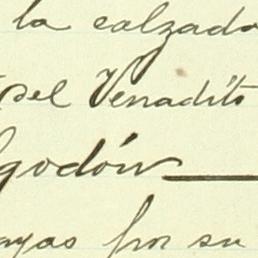 la calzada
del Venadito
lgodón
ayas por su